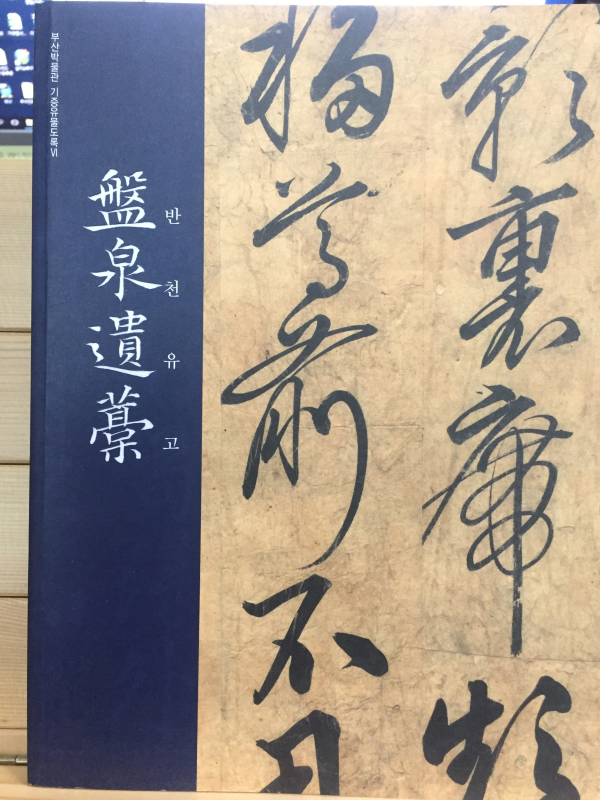 부산박물관 기증유물도록 Ⅵ
盤泉遺藁
반천유고
裏席
尊前不